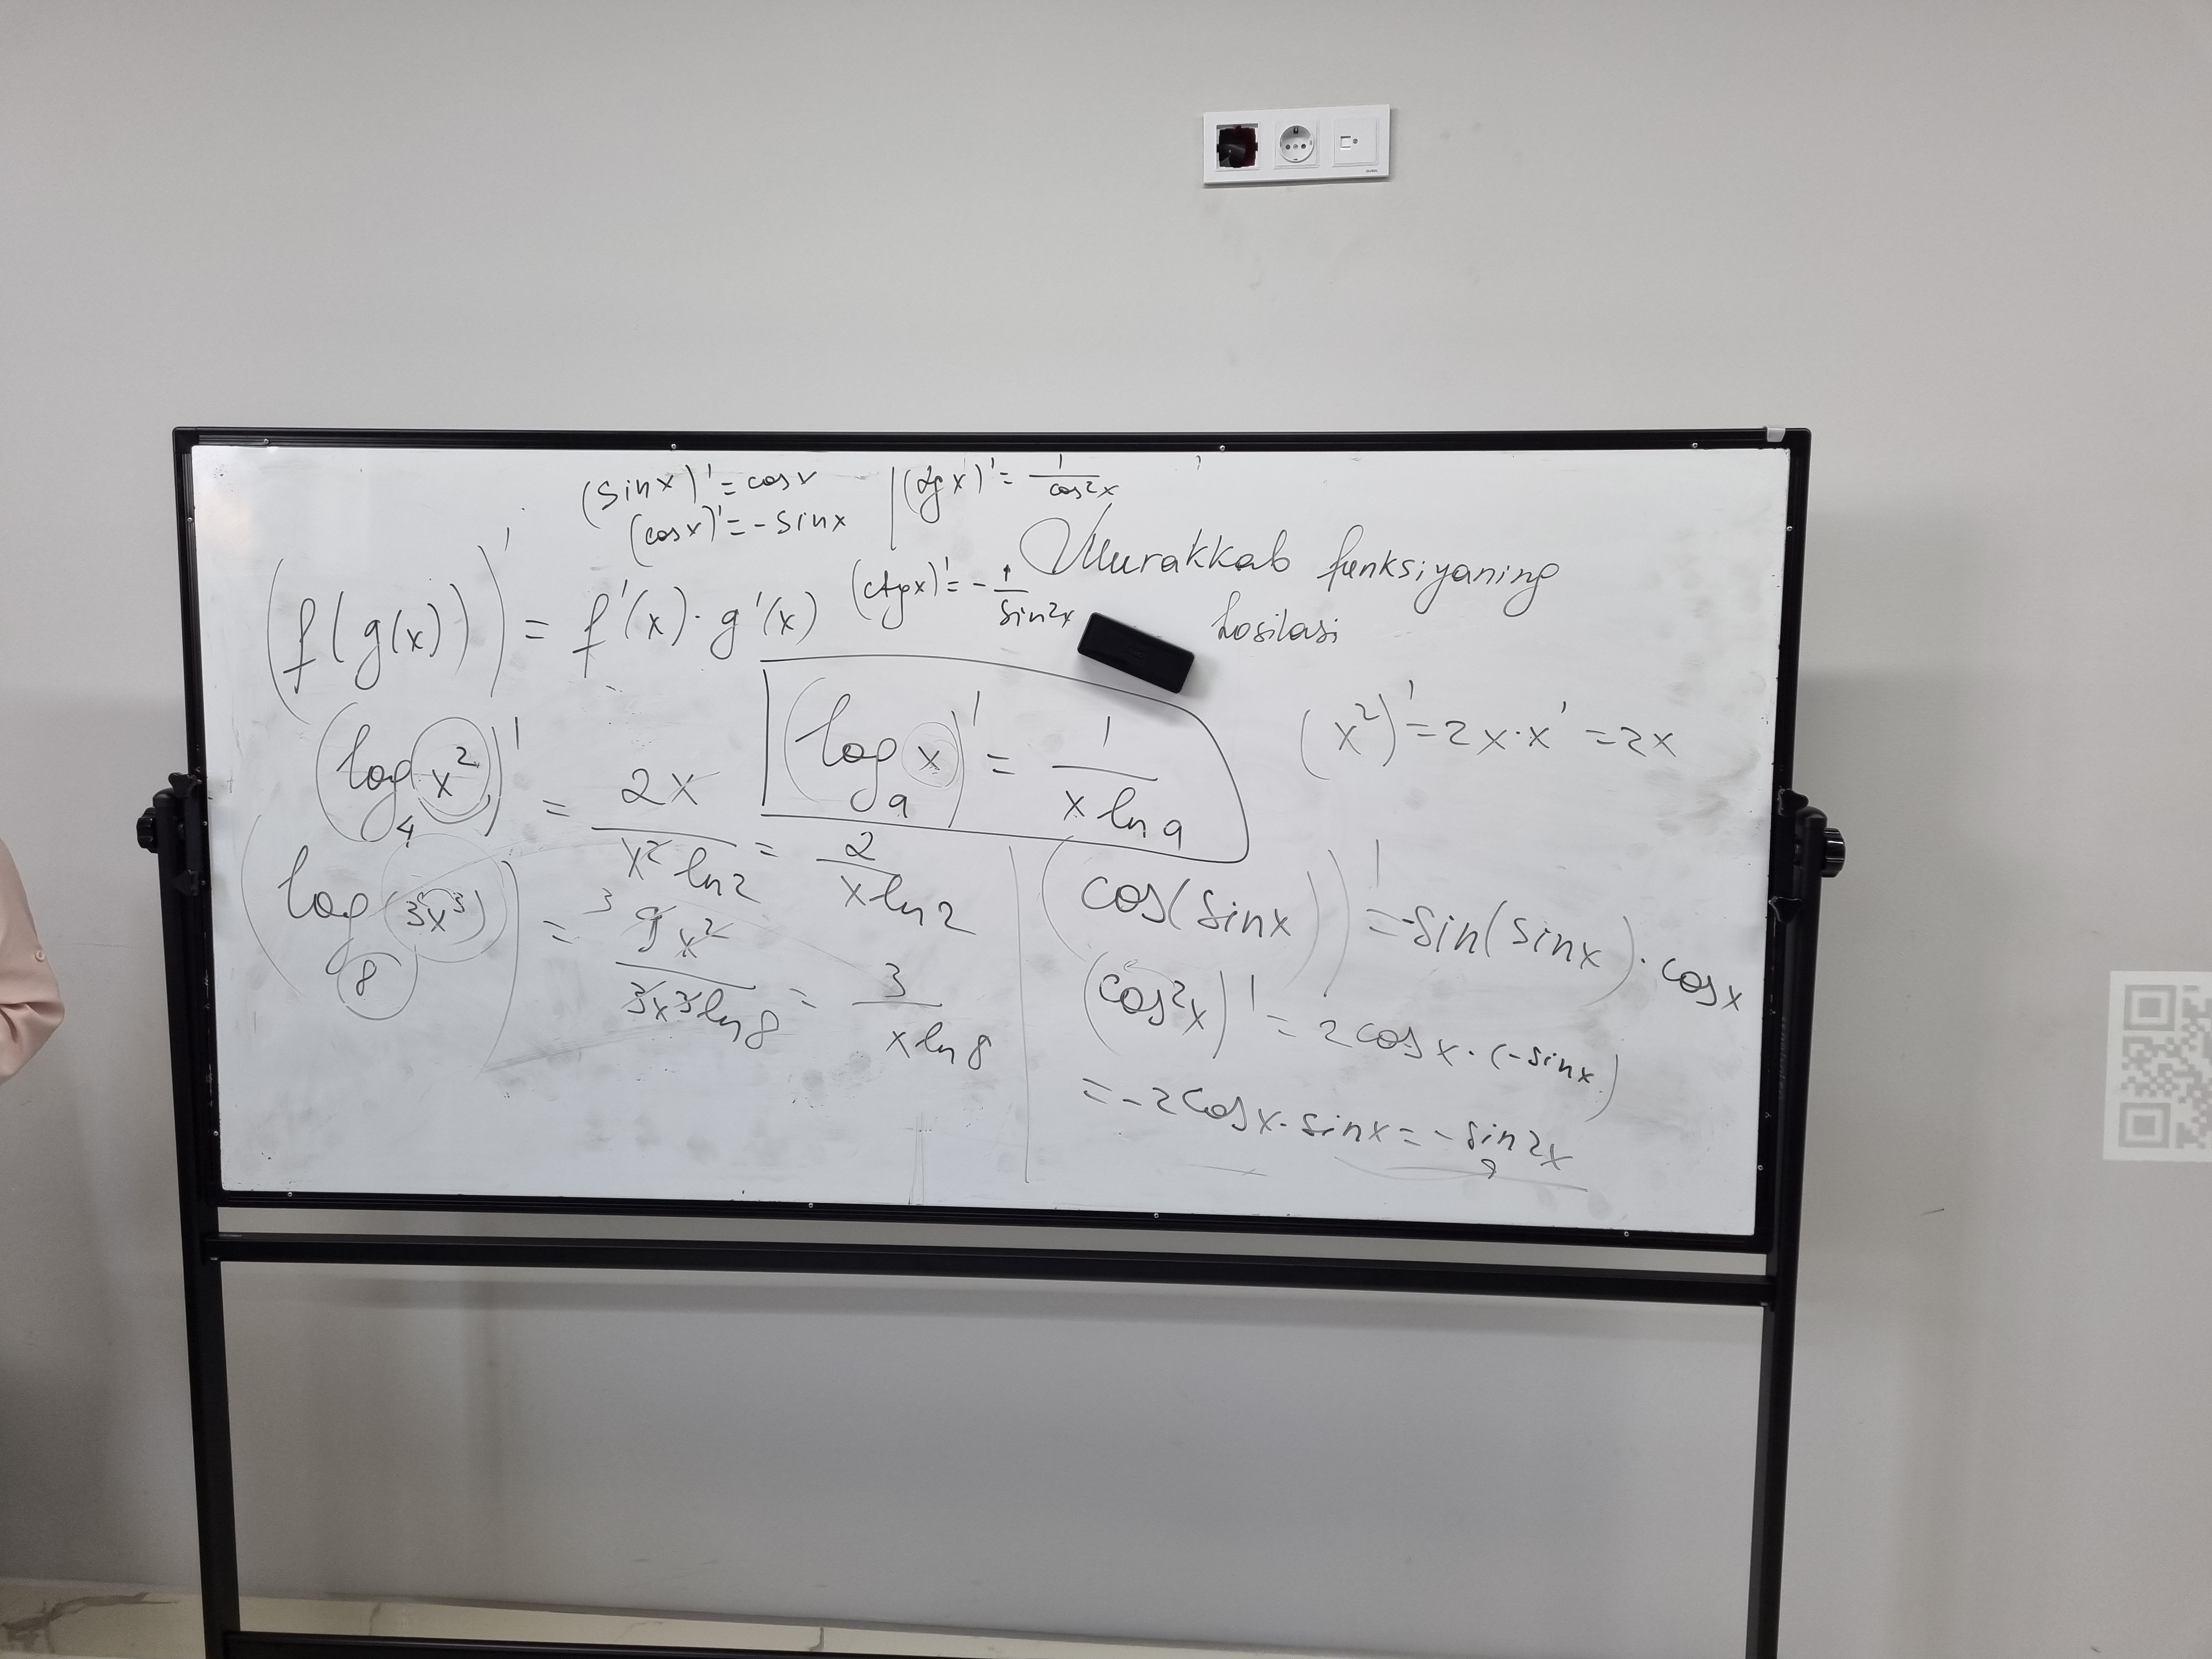 (sinx)' = cosx
(cosx)' = -sinx
(tgx)' = 1/cos²x
(ctgx)' = -1/sin²x
Murakkab funksiyaning
hosilasi
(f(g(x)))' = f'(x)·g'(x)
(log₄x²)' = 2x/(x²ln2) = 2/(xln2)
(logₐx)' = 1/(x ln a)
(x²)' = 2x·x' = 2x
(log₈(3x³)) = 9x²/(3x³ln8) = 3/(xln8)
3
(cos(sinx))' = -sin(sinx)·cosx
(cos²x)' = 2cosx·(-sinx)
= -2cosx·sinx = -sin2x